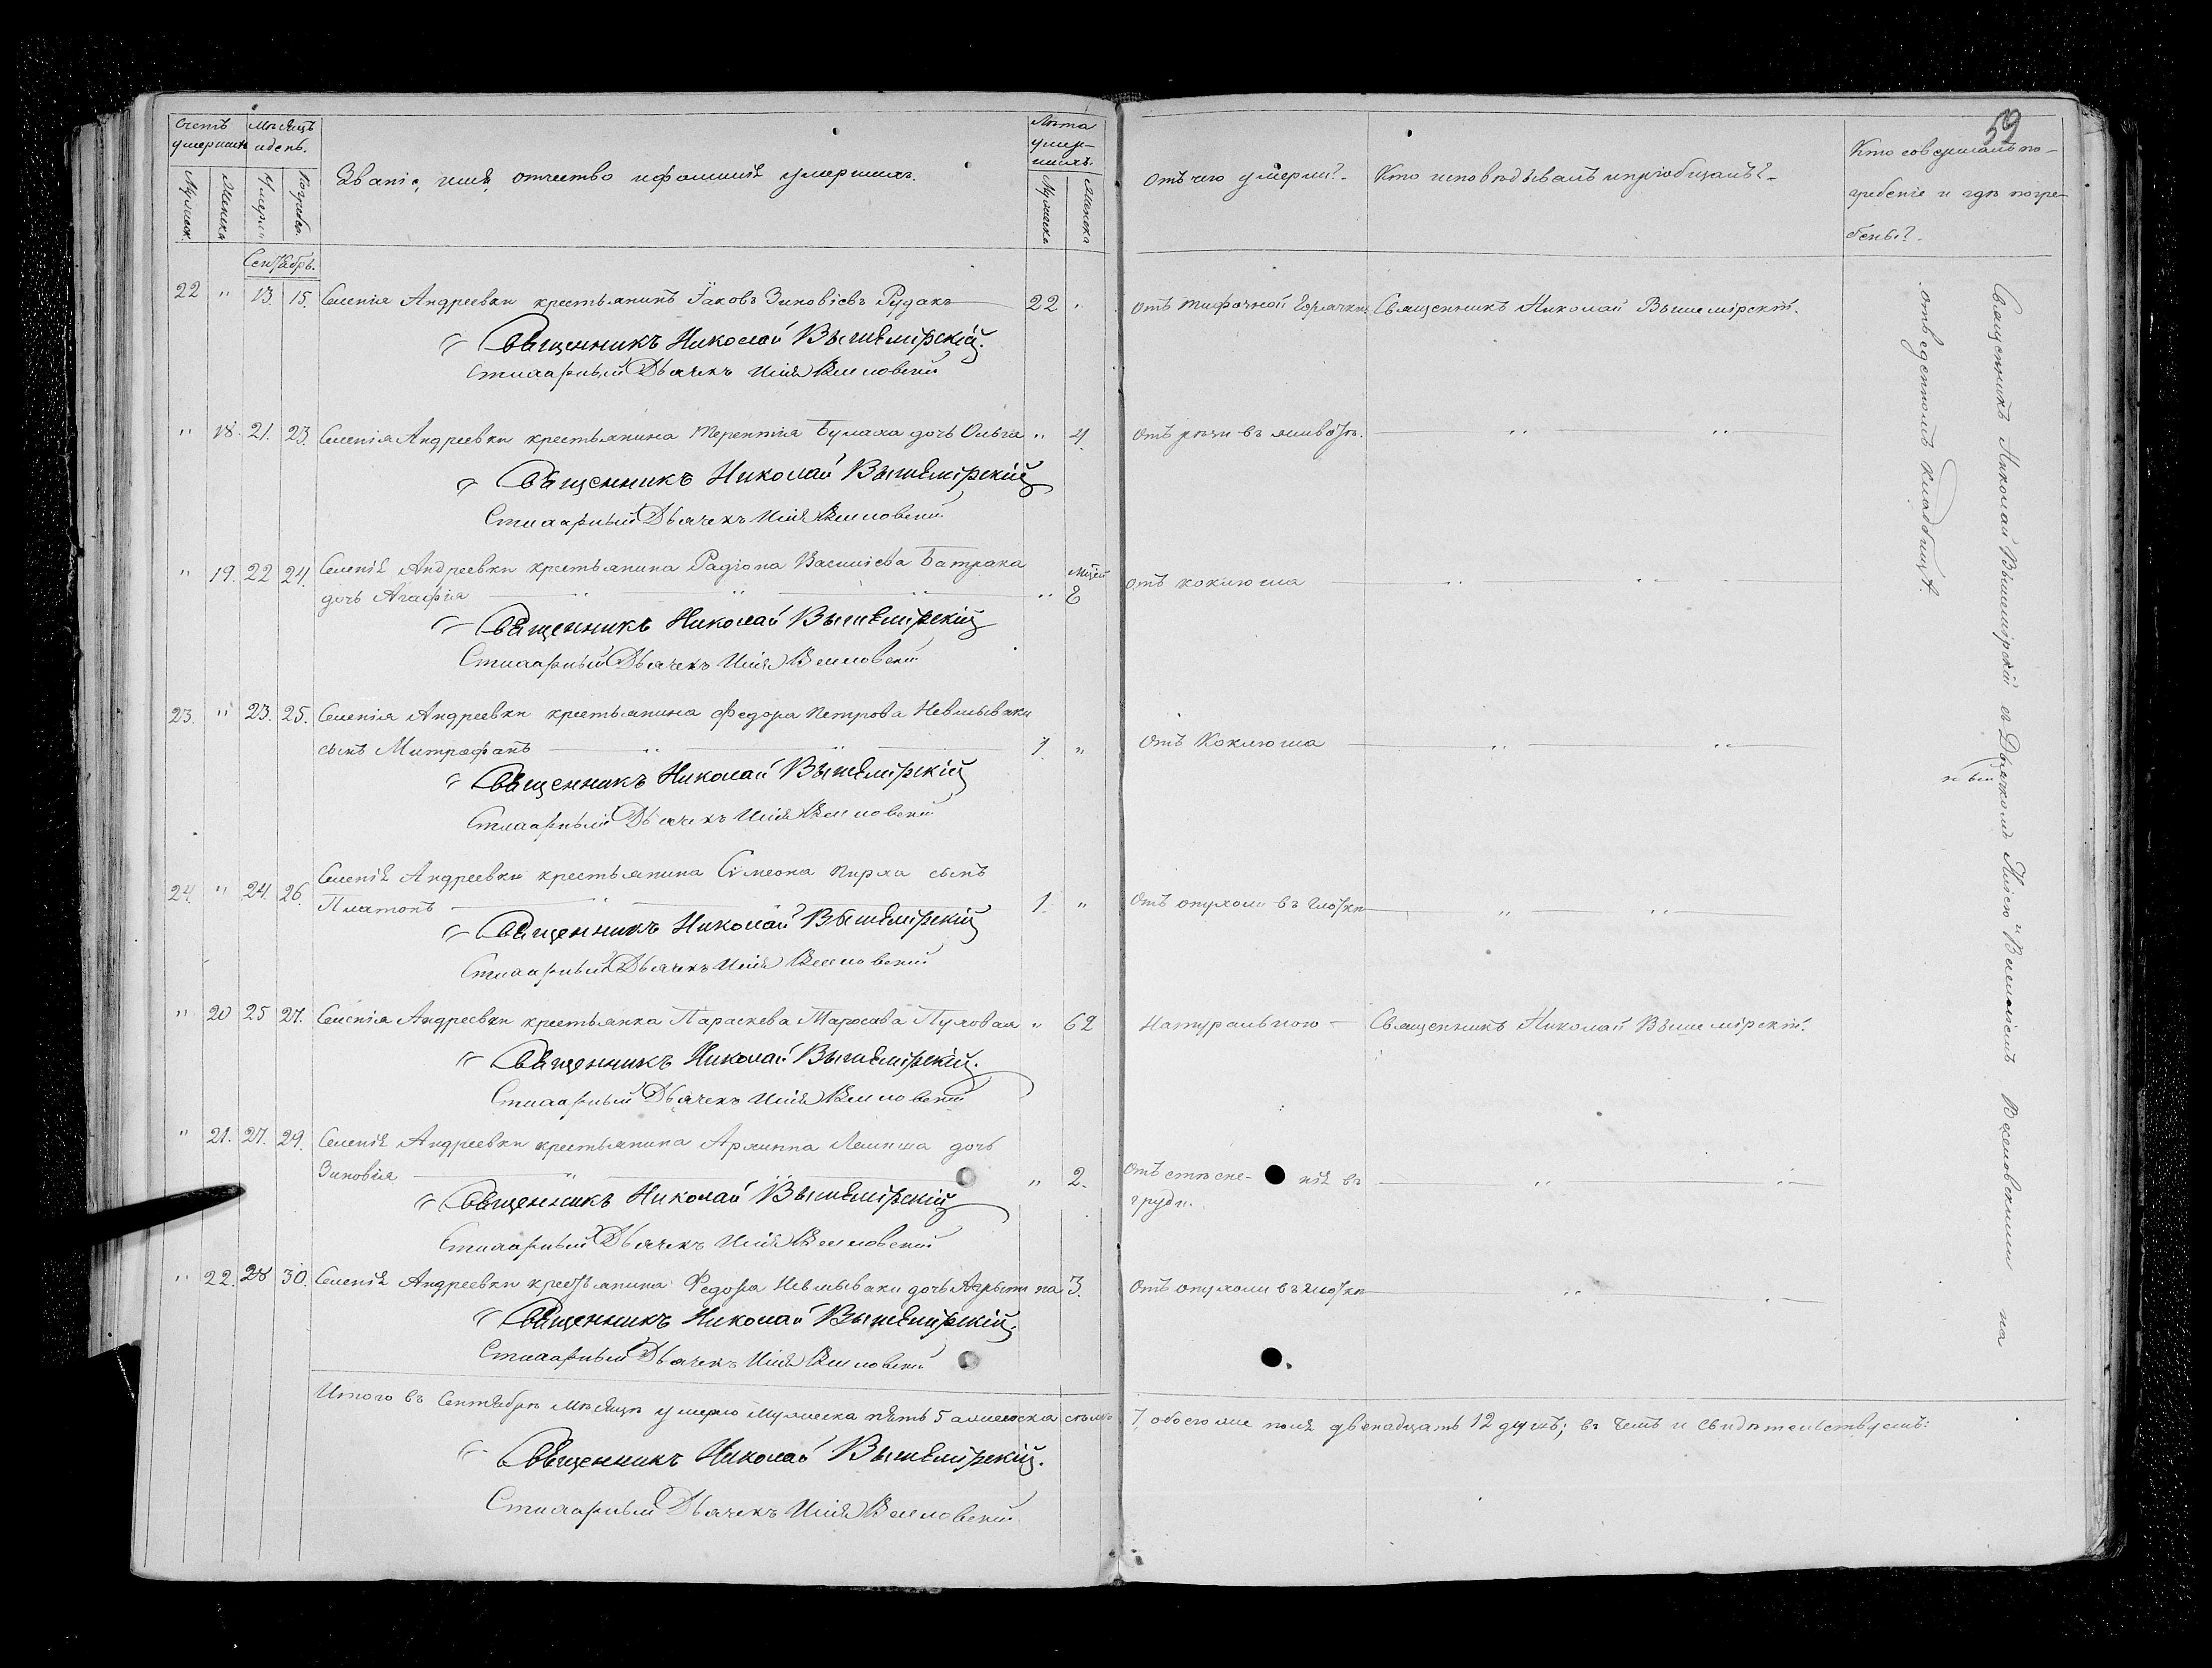 59
Счетъ умершихъ
Мѣсяцъ и день.
Званіе, имя, отчество и фамилія умершихъ.
Лѣта умер-
шихъ.
Отъ чего умерли?
Кто исповѣдывалъ и пріобщалъ?
Кто совершалъ по-
гребеніе и гдѣ погре-
бены?
Мужеск.
Женска
Умерли
Погребен.
Мужеска
Женска
Сентябрь.
22 " 13. 15. Селенія Андреевки крестьянинъ Іаковъ Зиновіевъ Рудакъ 22 " Отъ тифозной горячки Священникъ Николай Вышемірскій.
Священникъ Николай Вышемірскій.
Стихарный Дьячекъ Илія
" 18. 21. 23. Селенія Андреевки крестьянина Терентія Булаха дочь Ольга " 4 Отъ рѣзи въ животѣ. " "
Священникъ Николай Вышемірскій
Стихарный Дьячекъ Илія
" 19. 22 24. Селенія Андреевки крестьянина Радіона Василіева Батрака
дочь Агафія " " " " мѣсяц. 8 Отъ коклюша " "
Священникъ Николай Вышемірскій
Стихарный Дьячекъ Илія
23. " 23. 25. Селенія Андреевки крестьянина Федора Петрова Невмываки
сынъ Митрофанъ " " 1. " Отъ Коклюша " "
Священникъ Николай Вышемірскій
Стихарный Дьячекъ Илія
24. " 24. 26. Селенія Андреевки крестьянина Симеона Пирха сынъ
Платонъ " 1. " Отъ опухоли въ глоткѣ " "
Священникъ Николай Вышемірскій
Стихарный Дьячекъ Илія
" 20 25 27. Селенія Андреевки крестьянка Параскева Маркова Пуховая " 62 Натуральною Священникъ Николай Вышемірскій.
Священникъ Николай Вышемірскій.
Стихарный Дьячекъ Илія
" 21. 27. 29. Селенія Андреевки крестьянина Архиппа Лемиша дочь
Зиновія " " 2. Отъ стѣсне- нія въ " "
груди.
Священникъ Николай Вышемірскій
Стихарный Дьячекъ Илія
" 22. 28 30. Селенія Андреевки крестьянина Федора Невмываки дочь 3. Отъ опухоли въ глоткѣ " "
Священникъ Николай Вышемірскій.
Стихарный Дьячекъ Илія
Итого въ Сентябрѣ Мѣсяцѣ умерло Мужеска пять 5 а женска семь 7, обоего же пола двенадцать 12 душъ; въ чемъ и свидѣтельствуемъ:
Священникъ Николай Вышемірскій.
Стихарный Дьячекъ Илія
Священникъ Николай Вышемірскій съ Дьячкомъ Иліею на
отведенномъ кладбищѣ.